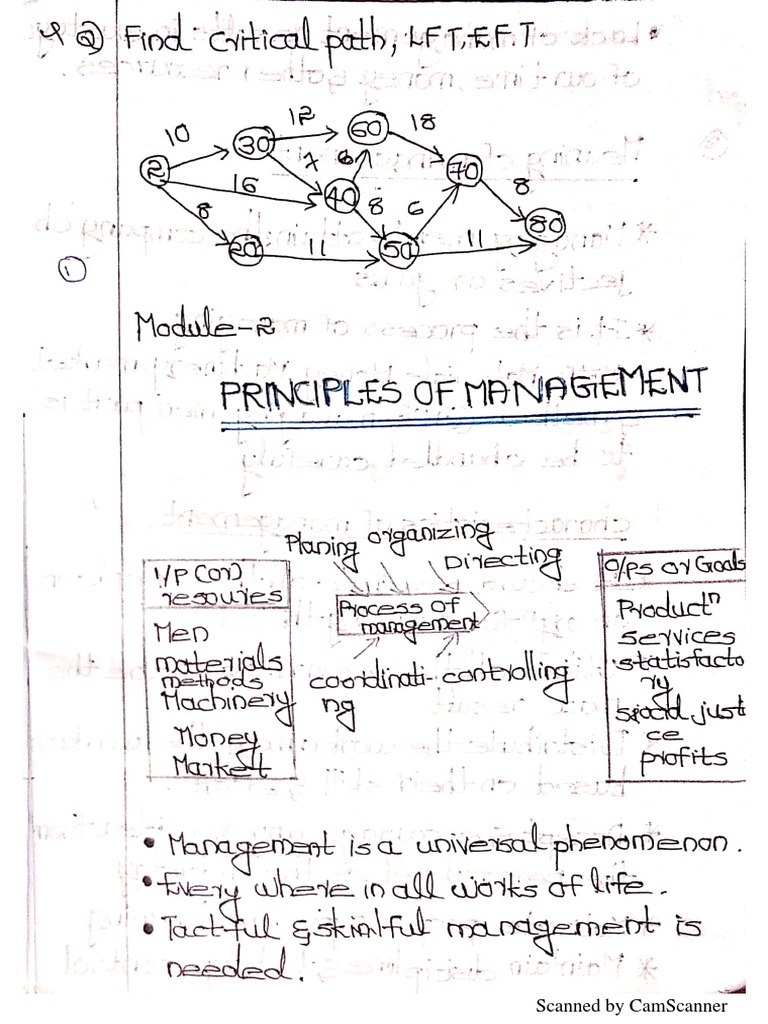 Q) Find critical path, LFT, E.F.T.
10
12
18
2
30
60
7
6
70
16
40
8
6
8
8
80
20
11
50
11
1
Module-2
PRINCIPLES OF MANAGEMENT
Planing organizing Directing
I/P (or) resouries
Process of management
O/Ps or Goals
Men
materials
methods
Machinery
Money
Market
coordinati-ng
controlling
Productn
services
statisfacto
ry
just
ce
profits
• Management is a universal phenomenon.
• Every where in all works of life.
• Tactful & management is
needed.
Scanned by CamScanner